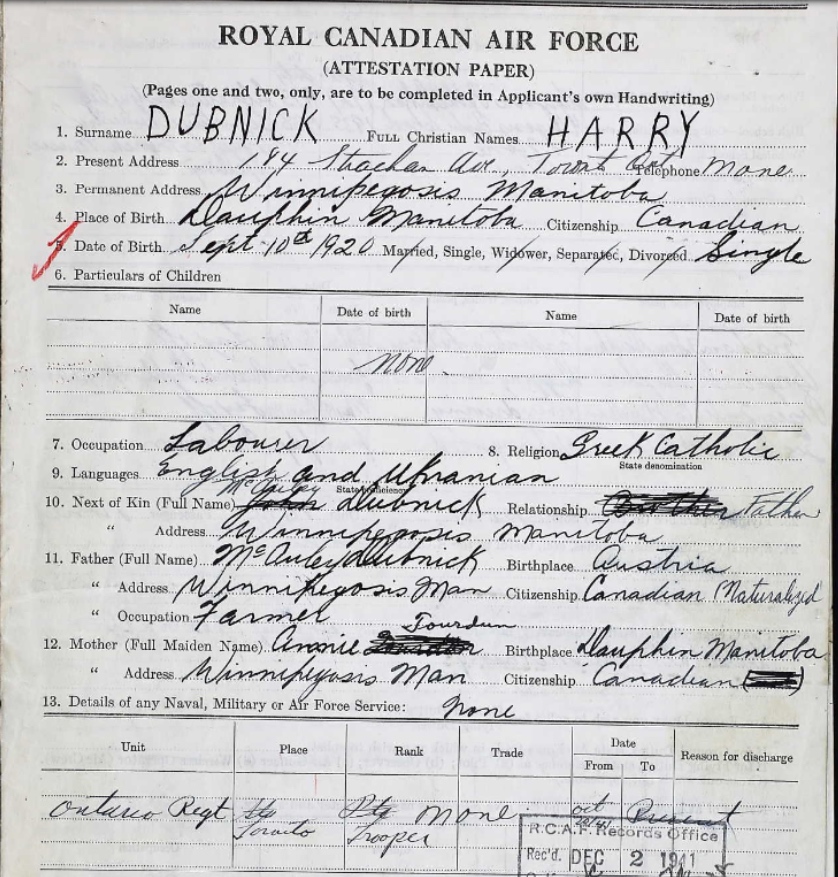 ROYAL CANADIAN AIR FORCE
(ATTESTATION PAPER)
(Pages one and two, only, are to be completed in Applicant's own Handwriting)
1. Surname DUBNICK FULL Christian Names HARRY
2. Present Address 194 Strachan Av, Toront Ont Telephone None
3. Permanent Address Winnipegosis Manitoba
4. Place of Birth Dauphin Manitoba Citizenship Canadian
5. Date of Birth Sept 10th 1920 Married, Single, Widower, Separated, Divorced Single
6. Particulars of Children
Name Date of birth Name Date of birth
None
7. Occupation Labourer 8. Religion Greek Catholic
State denomination
9. Languages English and Ukranian
State proficiency
10. Next of Kin (Full Name) McAuley Dubnick Relationship Father
" Address Winnipegosis Manitoba
11. Father (Full Name) McAuley Dubnick Birthplace Austria
" Address Winnipegosis Man Citizenship Canadian (Naturalized
" Occupation Farmer
12. Mother (Full Maiden Name) Annie Birthplace Dauphin Manitoba
" Address Winnipegosis Man Citizenship Canadian
13. Details of any Naval, Military or Air Force Service: None
Unit Place Rank Trade Date Reason for discharge
From To
Ontario Regt Toronto Pte Trooper None Oct Present
R.C.A.F. Records Office
Rec'd. DEC 2 1941